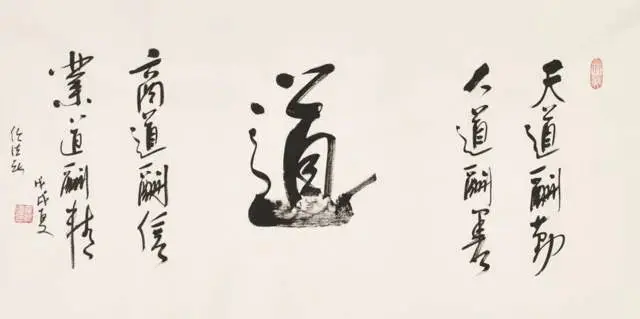 天道酬勤
大道酬善
道
商道酬信
業道酬精
戊戌夏
任法融